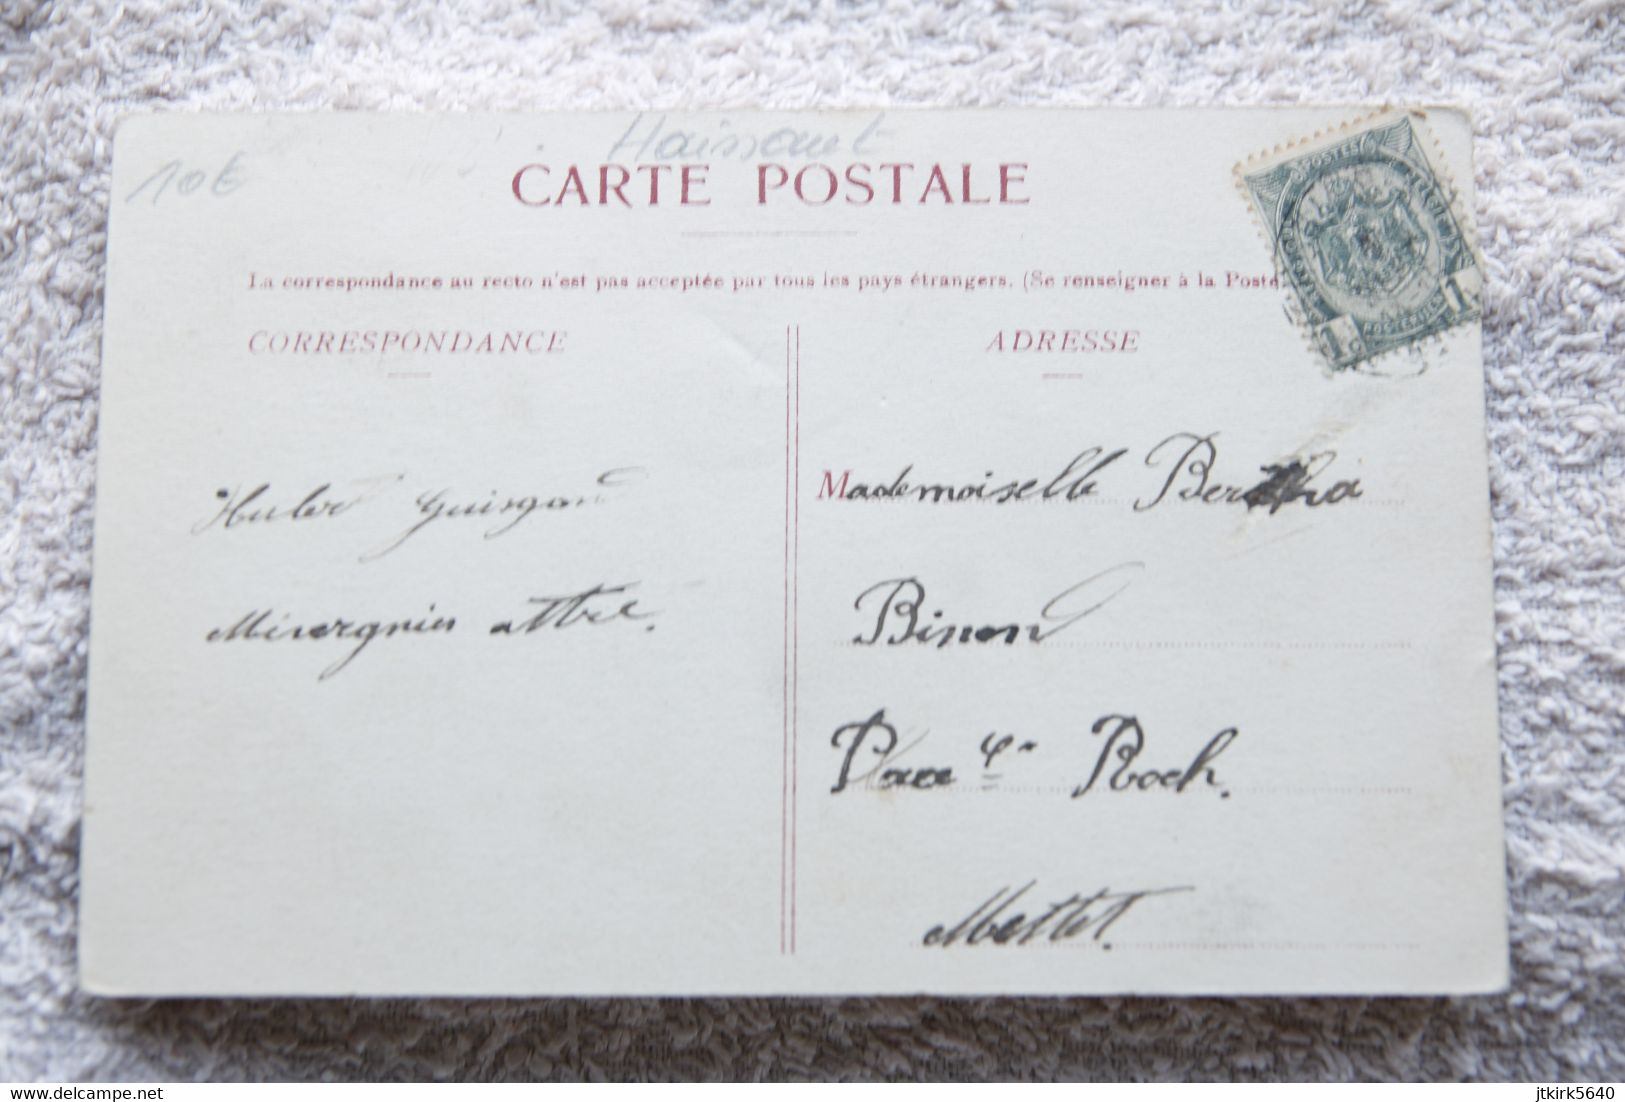 10€
Haissaut
CARTE POSTALE
La correspondance au recto n'est pas acceptée par tous les pays étrangers. (Se renseigner à la Poste
CORRESPONDANCE
ADRESSE
POSTES
1c
1c
Mademoiselle Bertha
Binon
Place Roch.
Mettet.
Hubert
attre.
delcampe.net
jtkirk5640